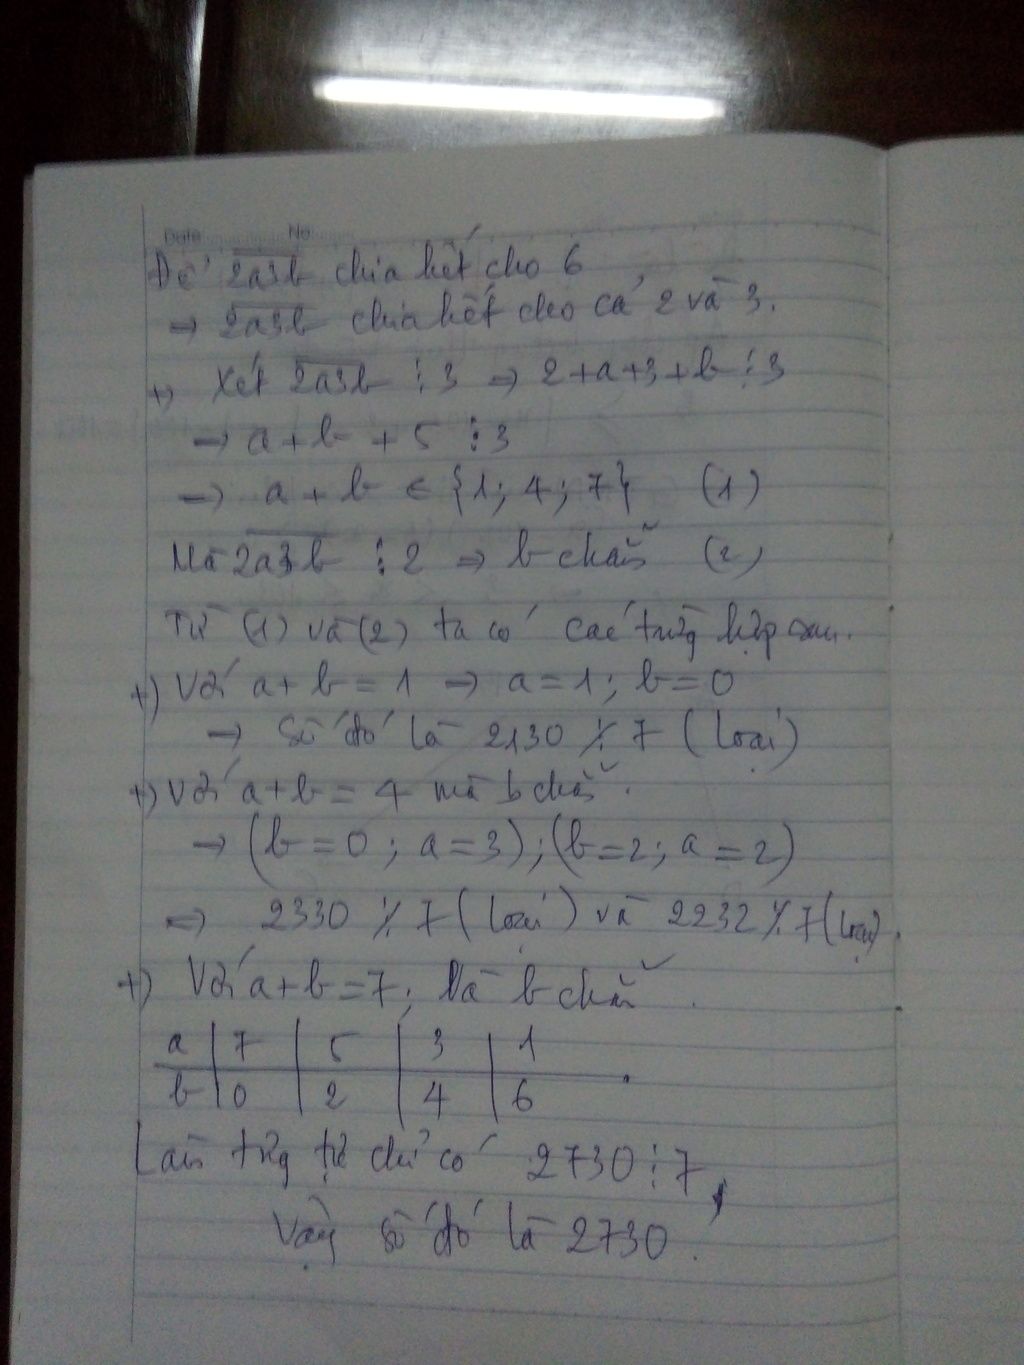 Date No
Để 2a3b chia hết cho 6
→ 2a3b chia hết cho cả 2 và 3.
+) Xét 2a3b ⋮ 3 → 2+a+3+b ⋮ 3
→ a+b+5 ⋮ 3
→ a+b ∈ {1; 4; 7} (1)
Mà 2a3b ⋮ 2 → b chẵn (2)
Từ (1) và (2) ta có các trường hợp sau.
+) Với a+b = 1 → a=1; b=0
→ Số đó là 2130 ⋮̸ 7 (loại)
+) Với a+b = 4 mà b chẵn.
→ (b=0; a=3); (b=2; a=2)
⇒ 2330 ⋮̸ 7 (loại) và 2232 ⋮̸ 7 (loại).
+) Với a+b=7; Mà b chẵn.
a | 7 | 5 | 3 | 1
b | 0 | 2 | 4 | 6
Làm tương tự chỉ có 2730 ⋮ 7,
Vậy số đó là 2730.